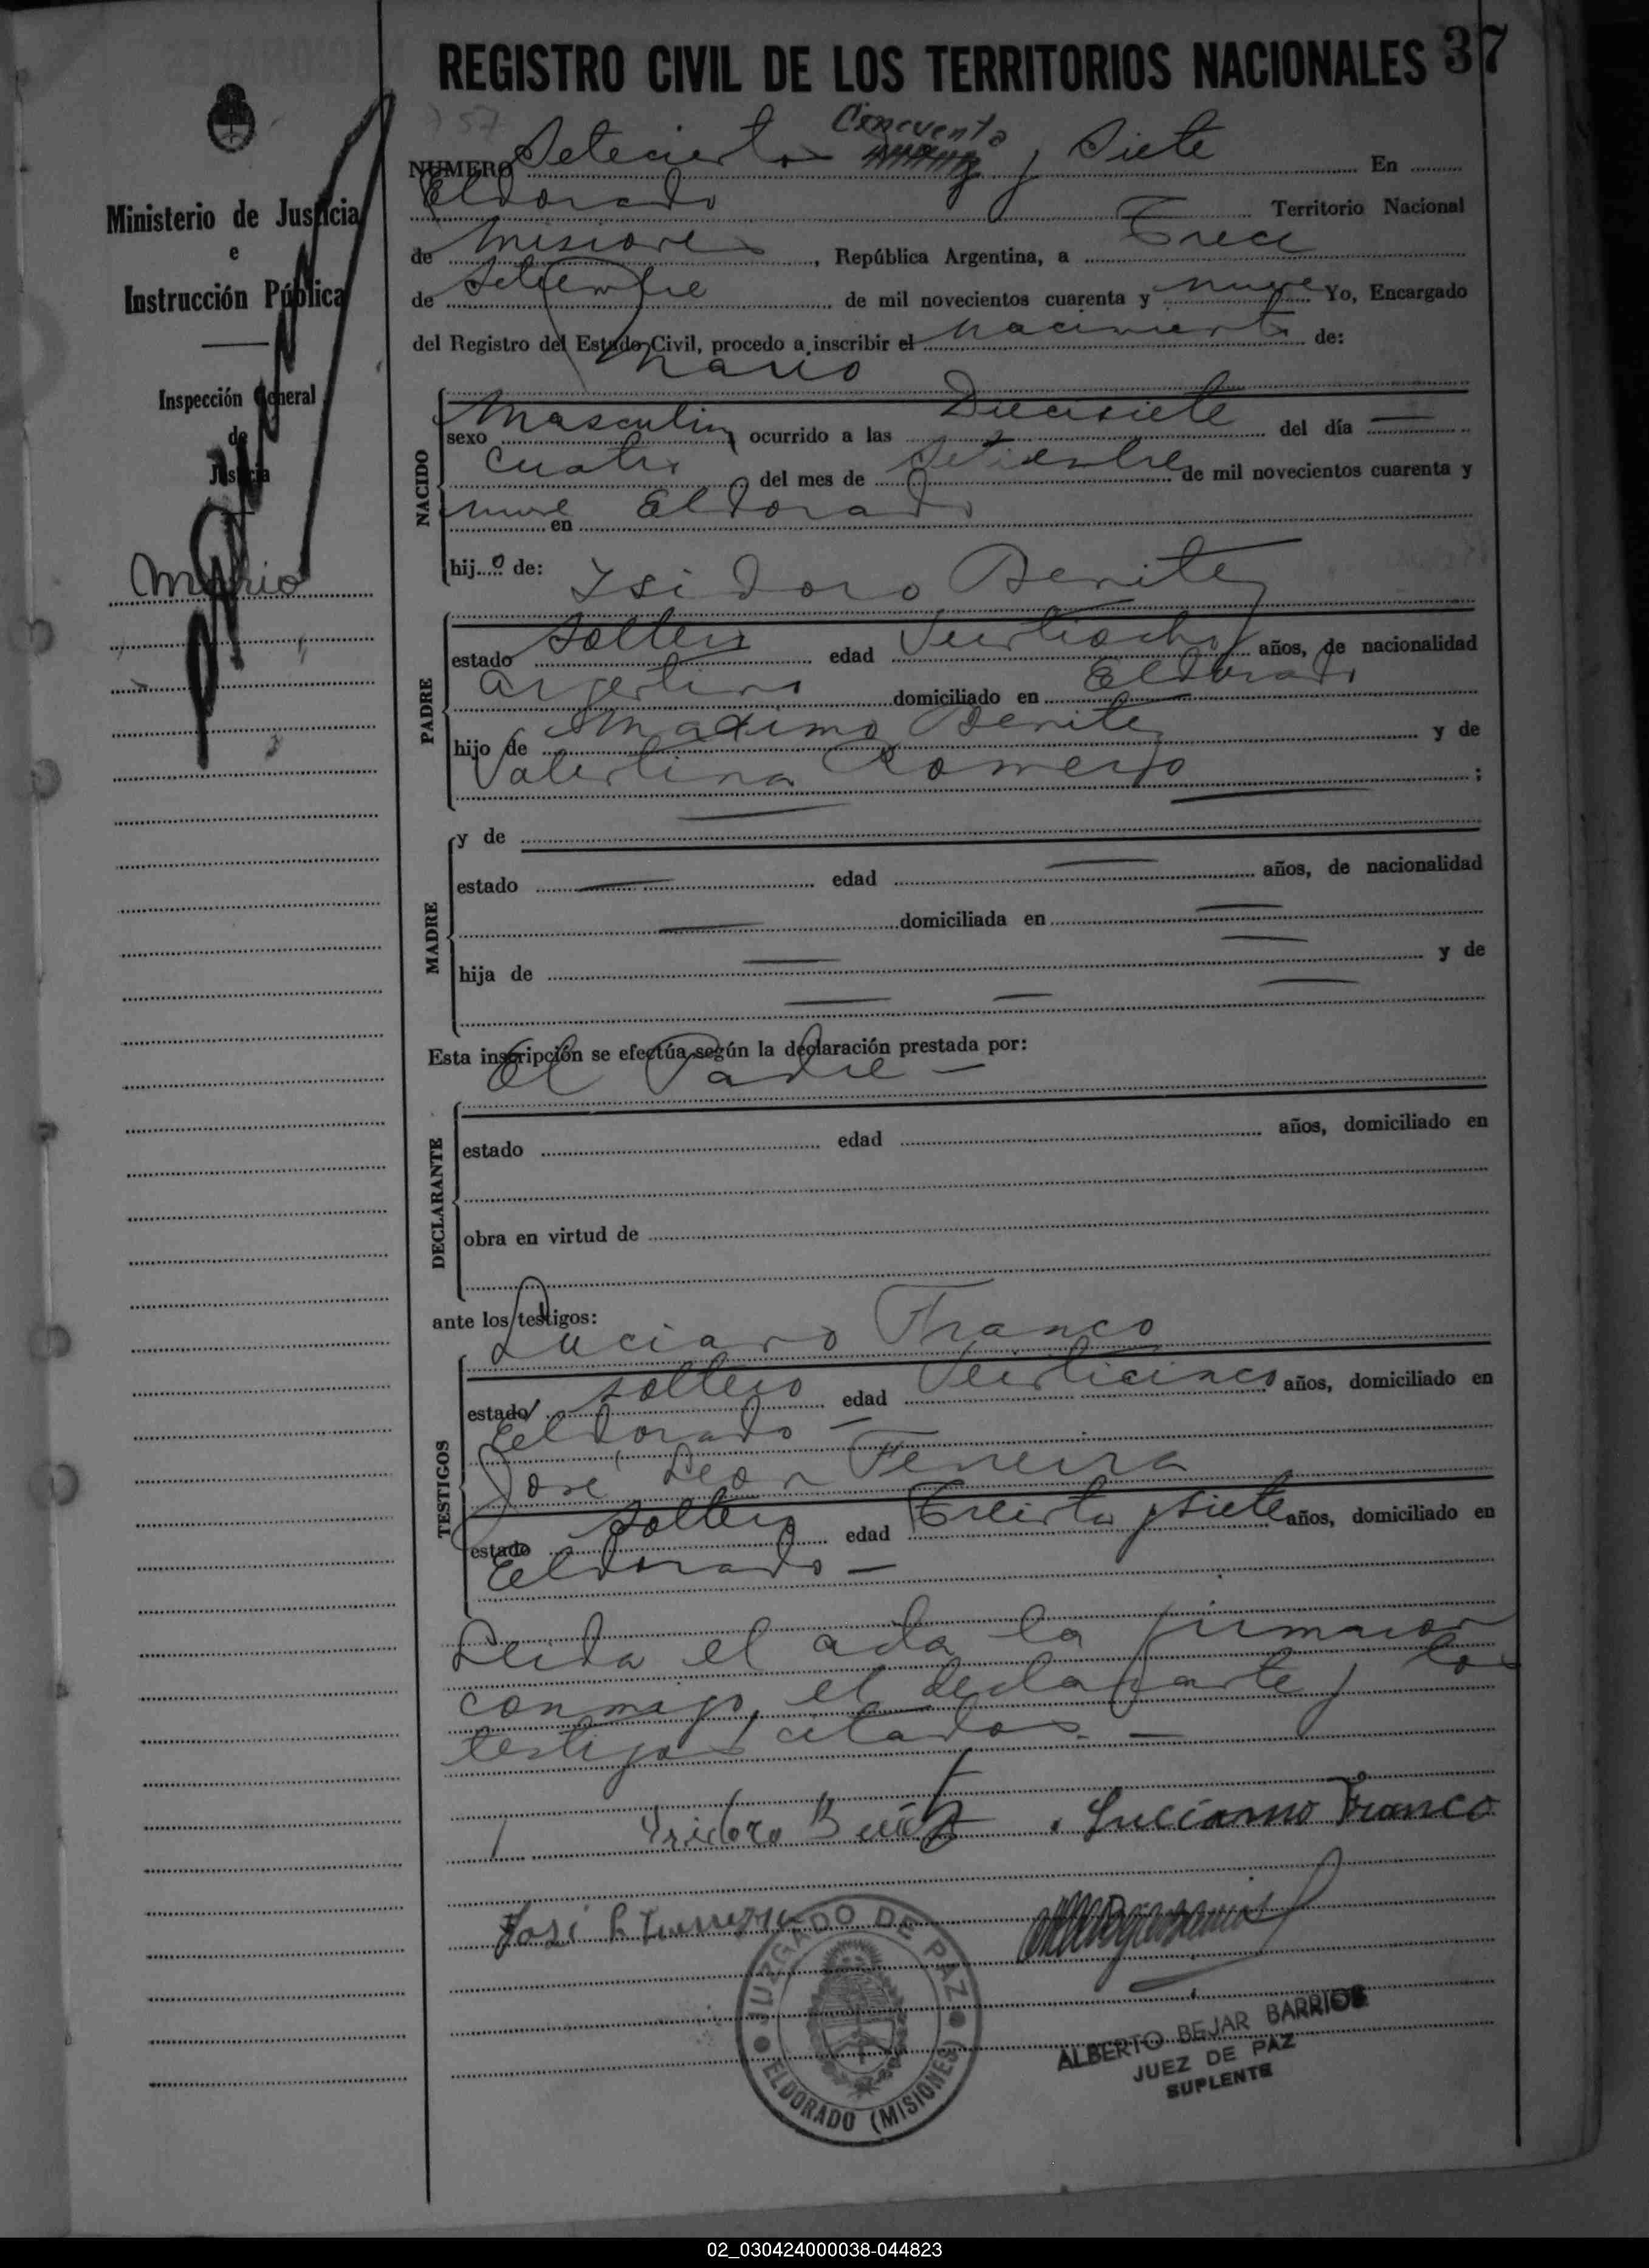 REGISTRO CIVIL DE LOS TERRITORIOS NACIONALES 37
757
Cincuenta
NUMERO Setecientos y Siete En
Eldorado Territorio Nacional
de Misiones, República Argentina, a Trece
de Setiembre de mil novecientos cuarenta y nueve Yo, Encargado
del Registro del Estado Civil, procedo a inscribir el nacimiento de:
Mario
NACIDO
sexo Masculino ocurrido a las Diecisiete del día —
cuatro del mes de Setiembre de mil novecientos cuarenta y
nueve en Eldorado
hijo de: Isidoro Benitez
PADRE
estado soltero edad Veintiocho años, de nacionalidad
argentino domiciliado en Eldorado
hijo de Maximo Benitez y de
Valentina Romero ;
MADRE
y de
estado — edad — años, de nacionalidad
— domiciliada en —
hija de — — y de
— — —
Esta inscripción se efectúa según la declaración prestada por:
El Padre —
DECLARANTE
estado edad años, domiciliado en
obra en virtud de
ante los testigos:
Luciano Franco
TESTIGOS
estado soltero edad Veinticinco años, domiciliado en
Eldorado —
José Leon Ferreira
estado soltero edad Treinta y siete años, domiciliado en
Eldorado —
Leida el acta la firmaron
conmigo, el declarante y los
testigos citados. —
Isidoro Benitez Luciano Franco
José L
JUZGADO DE PAZ
ELDORADO (MISIONES)
ALBERTO BEJAR BARRIOS
JUEZ DE PAZ
SUPLENTE
Ministerio de Justicia
e
Instrucción Pública
Inspección General
de
Justicia
Mario
02_030424000038-044823